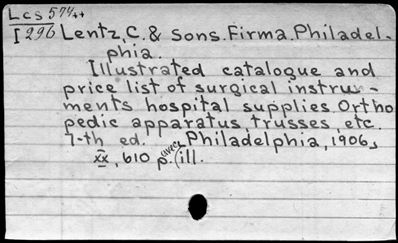 Lcs 574++
I 296 Lentz, C. & Sons. Firma. Philadel-
phia.
Illustrated catalogue and
price list of surgical instru-
ments hospital supplies. Ortho
pedic apparatus, trusses, etc.
7-th ed. Philadelphia, 1906,
xx, 610 p. (ill.